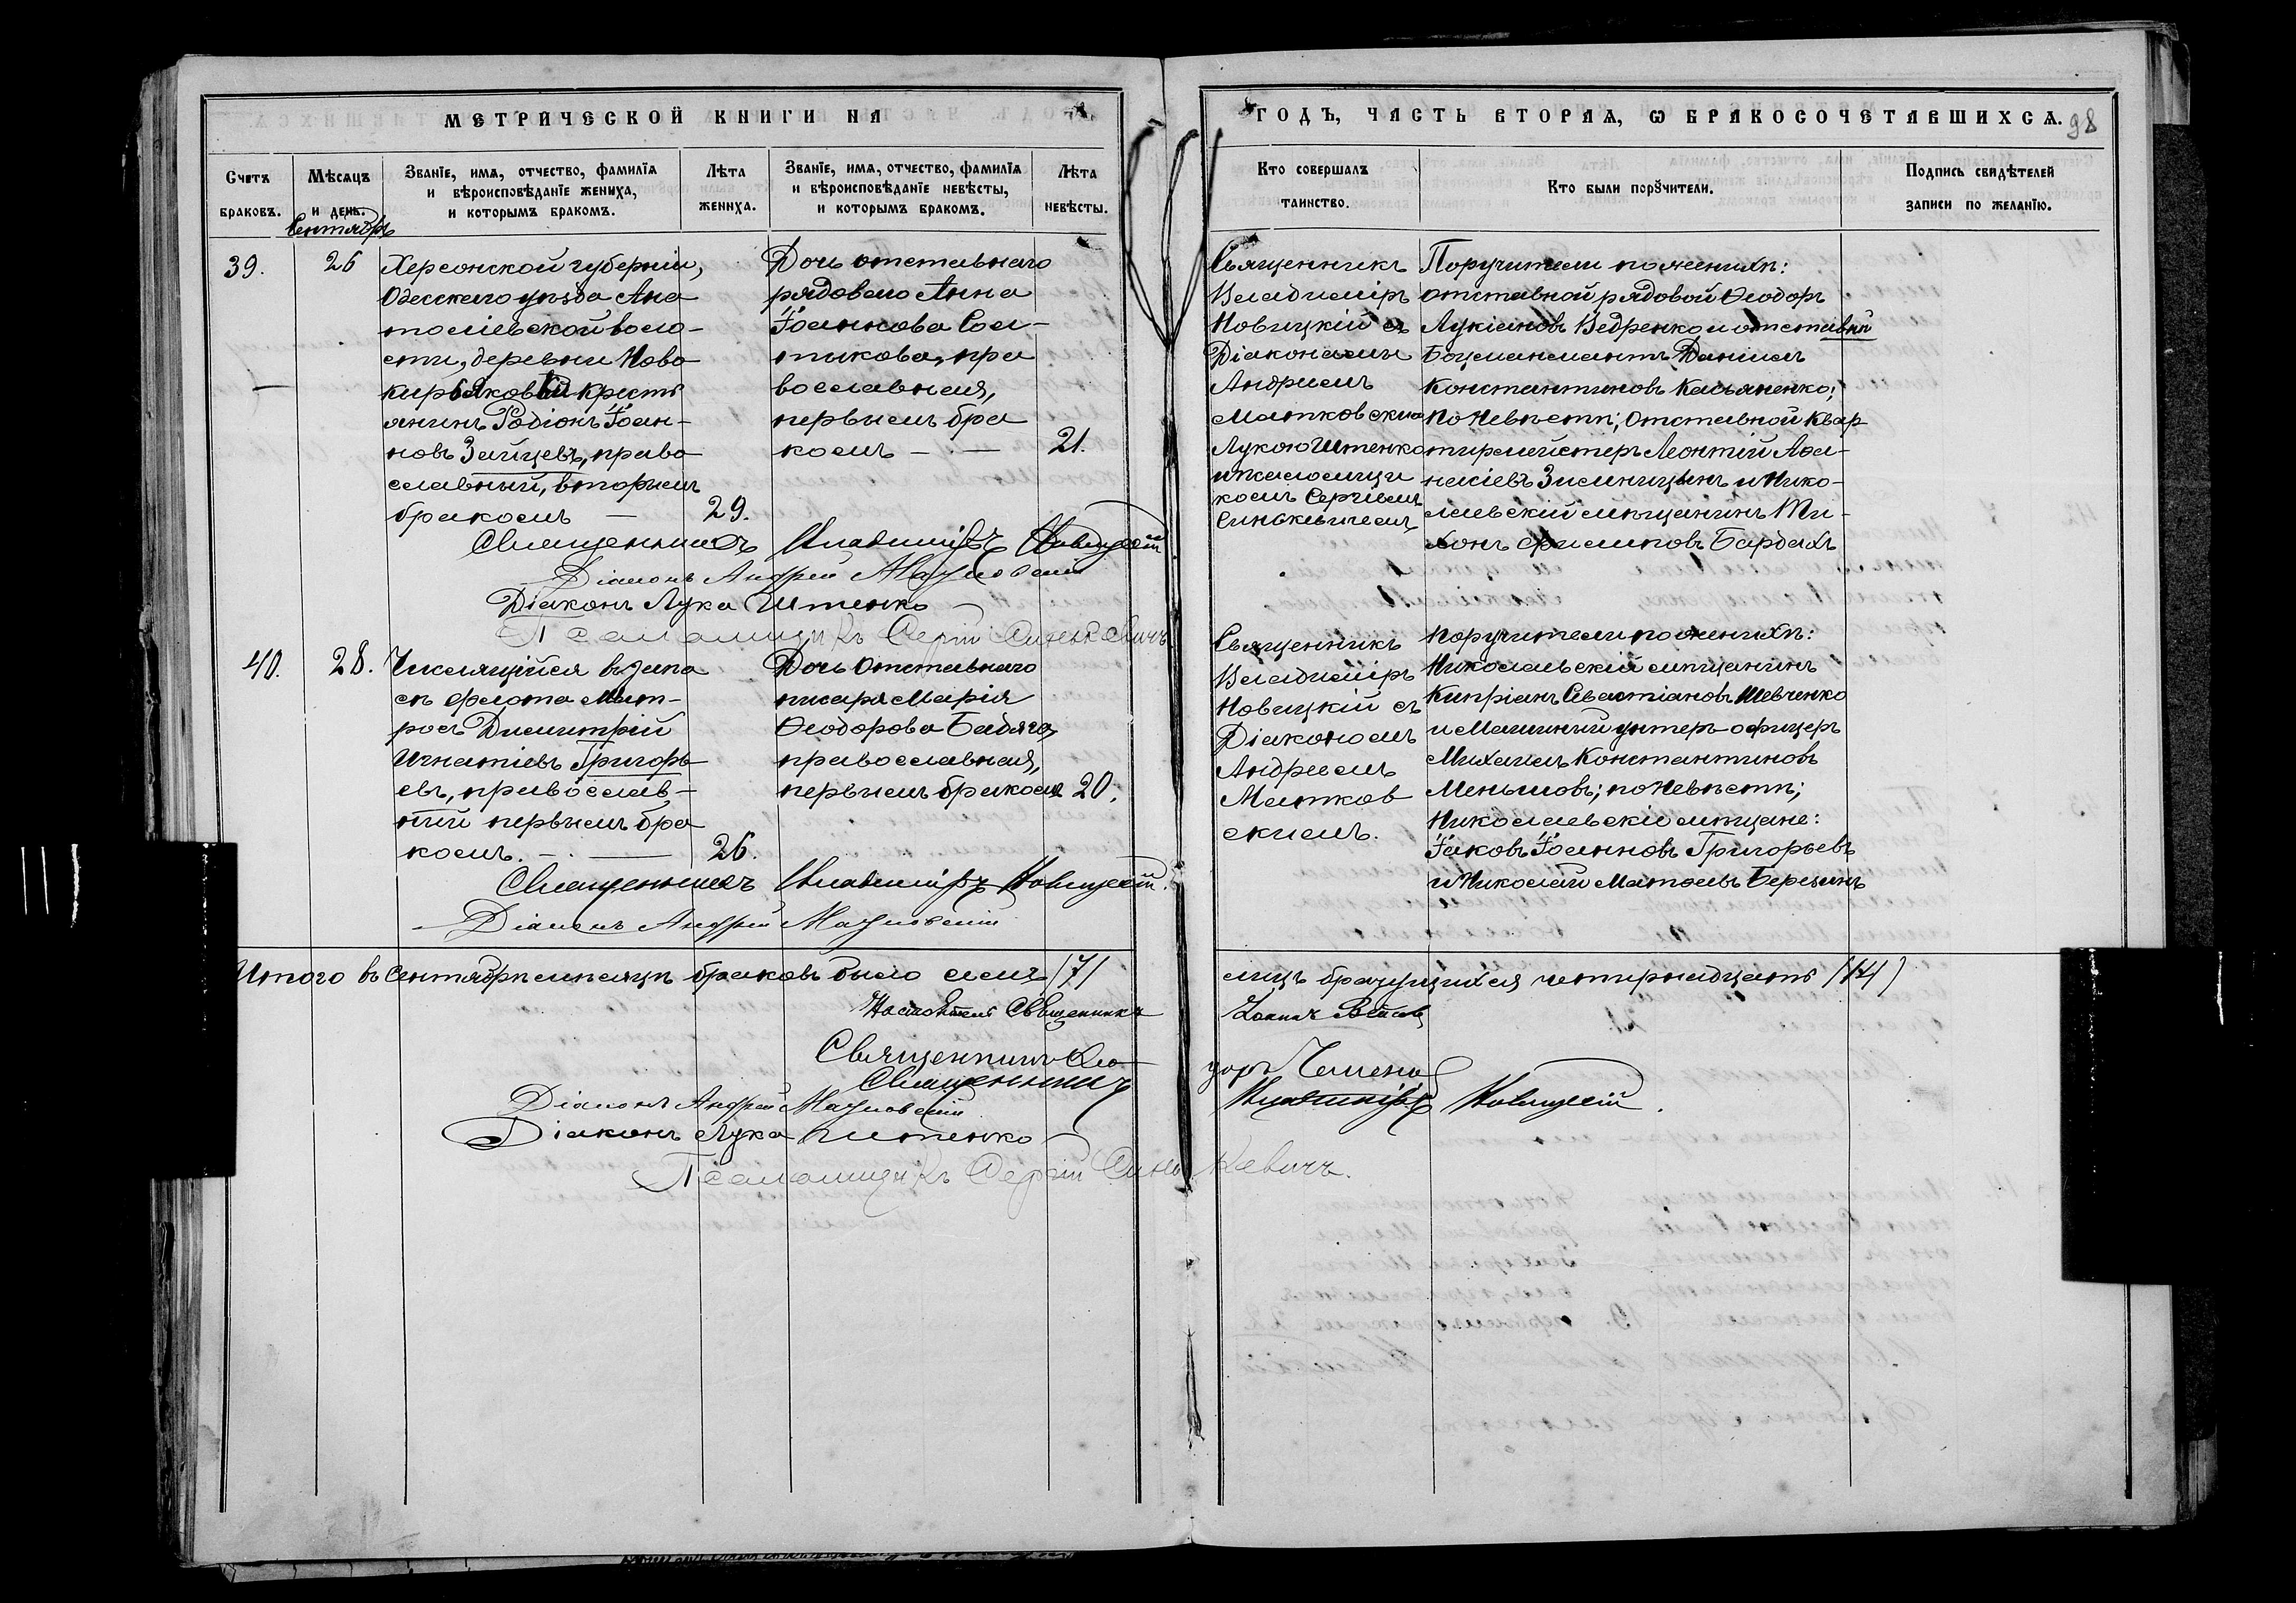 МЕТРИЧЕСКОЙ КНИГИ НА
ГОДЪ, ЧАСТЬ ВТОРАЯ, Ѡ БРАКОСОЧЕТАВШИХСѦ.
98
Счетъ
браковъ.
Мѣсяцъ
и день.
Званїе, имѧ, отчество, фамилїѧ
и вѣроисповѣданїе жениха,
и которымъ бракомъ.
Лѣта
жениха.
Званїе, имѧ, отчество, фамилїѧ
и вѣроисповѣданїе невѣсты,
и которымъ бракомъ.
Лѣта
невѣсты.
Кто совершалъ
таинство.
Кто были порꙋчители.
Подпись свидѣтелей
записи по желанїю.
Сентябрь
39.
26
Херсонской губерніи,
Одесскаго уѣзда Ана
толіевской воло-
сти, деревни Ново
кирьяковки кресть
янинъ Родіонъ Іоан-
новъ Зайцевъ, право
славный, вторымъ
бракомъ —
29.
Дочь отставнаго
рядоваго Анна
Іоаннова Сал-
тыкова, пра
вославная,
первымъ бра
комъ — —
21.
Священникъ
Владиміръ
Новицкій съ
Діаконами
Андреемъ
Матковским
Лукою Штенко
и псаломщи
комъ Сергіемъ
Синькевичемъ
Поручители по женихѣ:
отставной рядовой Ѳеодоръ
Лукіановъ Ведренко и отставный
Боцманматъ Даніилъ
Константиновъ Касьяненко;
по Невѣстѣ; Отставной Квар
тирмейстеръ Леонтій Аѳа-
насіевъ Зимницынъ и Нико-
лаевскій мѣщанинъ Ти-
хонъ Филиповъ Бардахъ
Священникъ Владиміръ Новицкій
Діаконъ Андрей Матковскій
Діаконъ Лука Штенко
Псаломщикъ Сергій Синькевичъ
40.
28.
Числящійся въ запа
сѣ флота Мат-
росъ Димитрій
Игнатіевъ Григорь
евъ, православ-
ный первымъ бра
комъ. — —
26.
Дочь Отставнаго
писаря Марія
Ѳеодорова Бадяга,
православная,
первымъ бракомъ
20.
Священникъ
Владиміръ
Новицкій съ
Діакономъ
Андреемъ
Матков
скимъ.
Поручители по женихѣ:
Николаевскій мѣщанинъ
Кипріанъ Севастіановъ Шевченко
и Машинный унтеръ-офицеръ
Михаилъ Константиновъ
Меньшовъ; по Невѣстѣ;
Николаевскіе мѣщане:
Іаковъ Іоанновъ Григорьевъ
и Николай Матѳеевъ Березинъ
Священникъ Владиміръ Новицкій.
Діаконъ Андрей Матковскій
Итого въ Сентябрѣ мѣсяцѣ браковъ было семь /7/
лицъ брачущихся четырнадцать /14/
Настоятель Священникъ
Священникъ Ѳео
доръ
Священникъ Владиміръ Новицкій.
Діаконъ Андрей Матковскій
Діаконъ Лука Штенко
Псаломщикъ Сергій Синькевичъ.